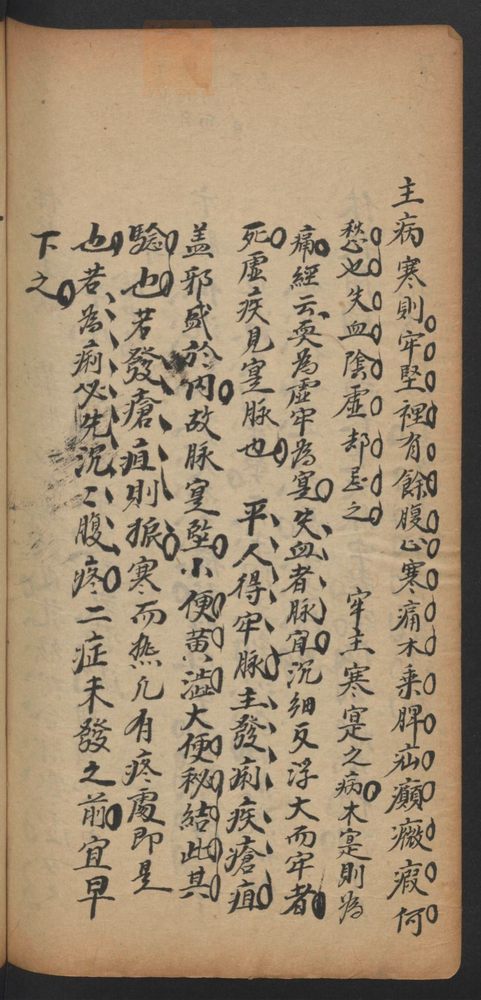 主病寒則牢堅裡有餘腹心寒痛木乘脾疝癲癥瘕何
愁也失血陰虛却忌之　牢主寒寔之病木寔則為
痛經云耎為虛牢為寔失血者脉宜沉細反浮大而牢者
死虛疾見寔脉也　平人得牢脉主發痢疾瘡疽
盖邪盛於内故脉寔堅小便黄澁大便秘結此其
驗也若發瘡疽則振寒而熱凡有疼處即是
也若為痢必先沉〻腹疼二症未發之前宜早
下之